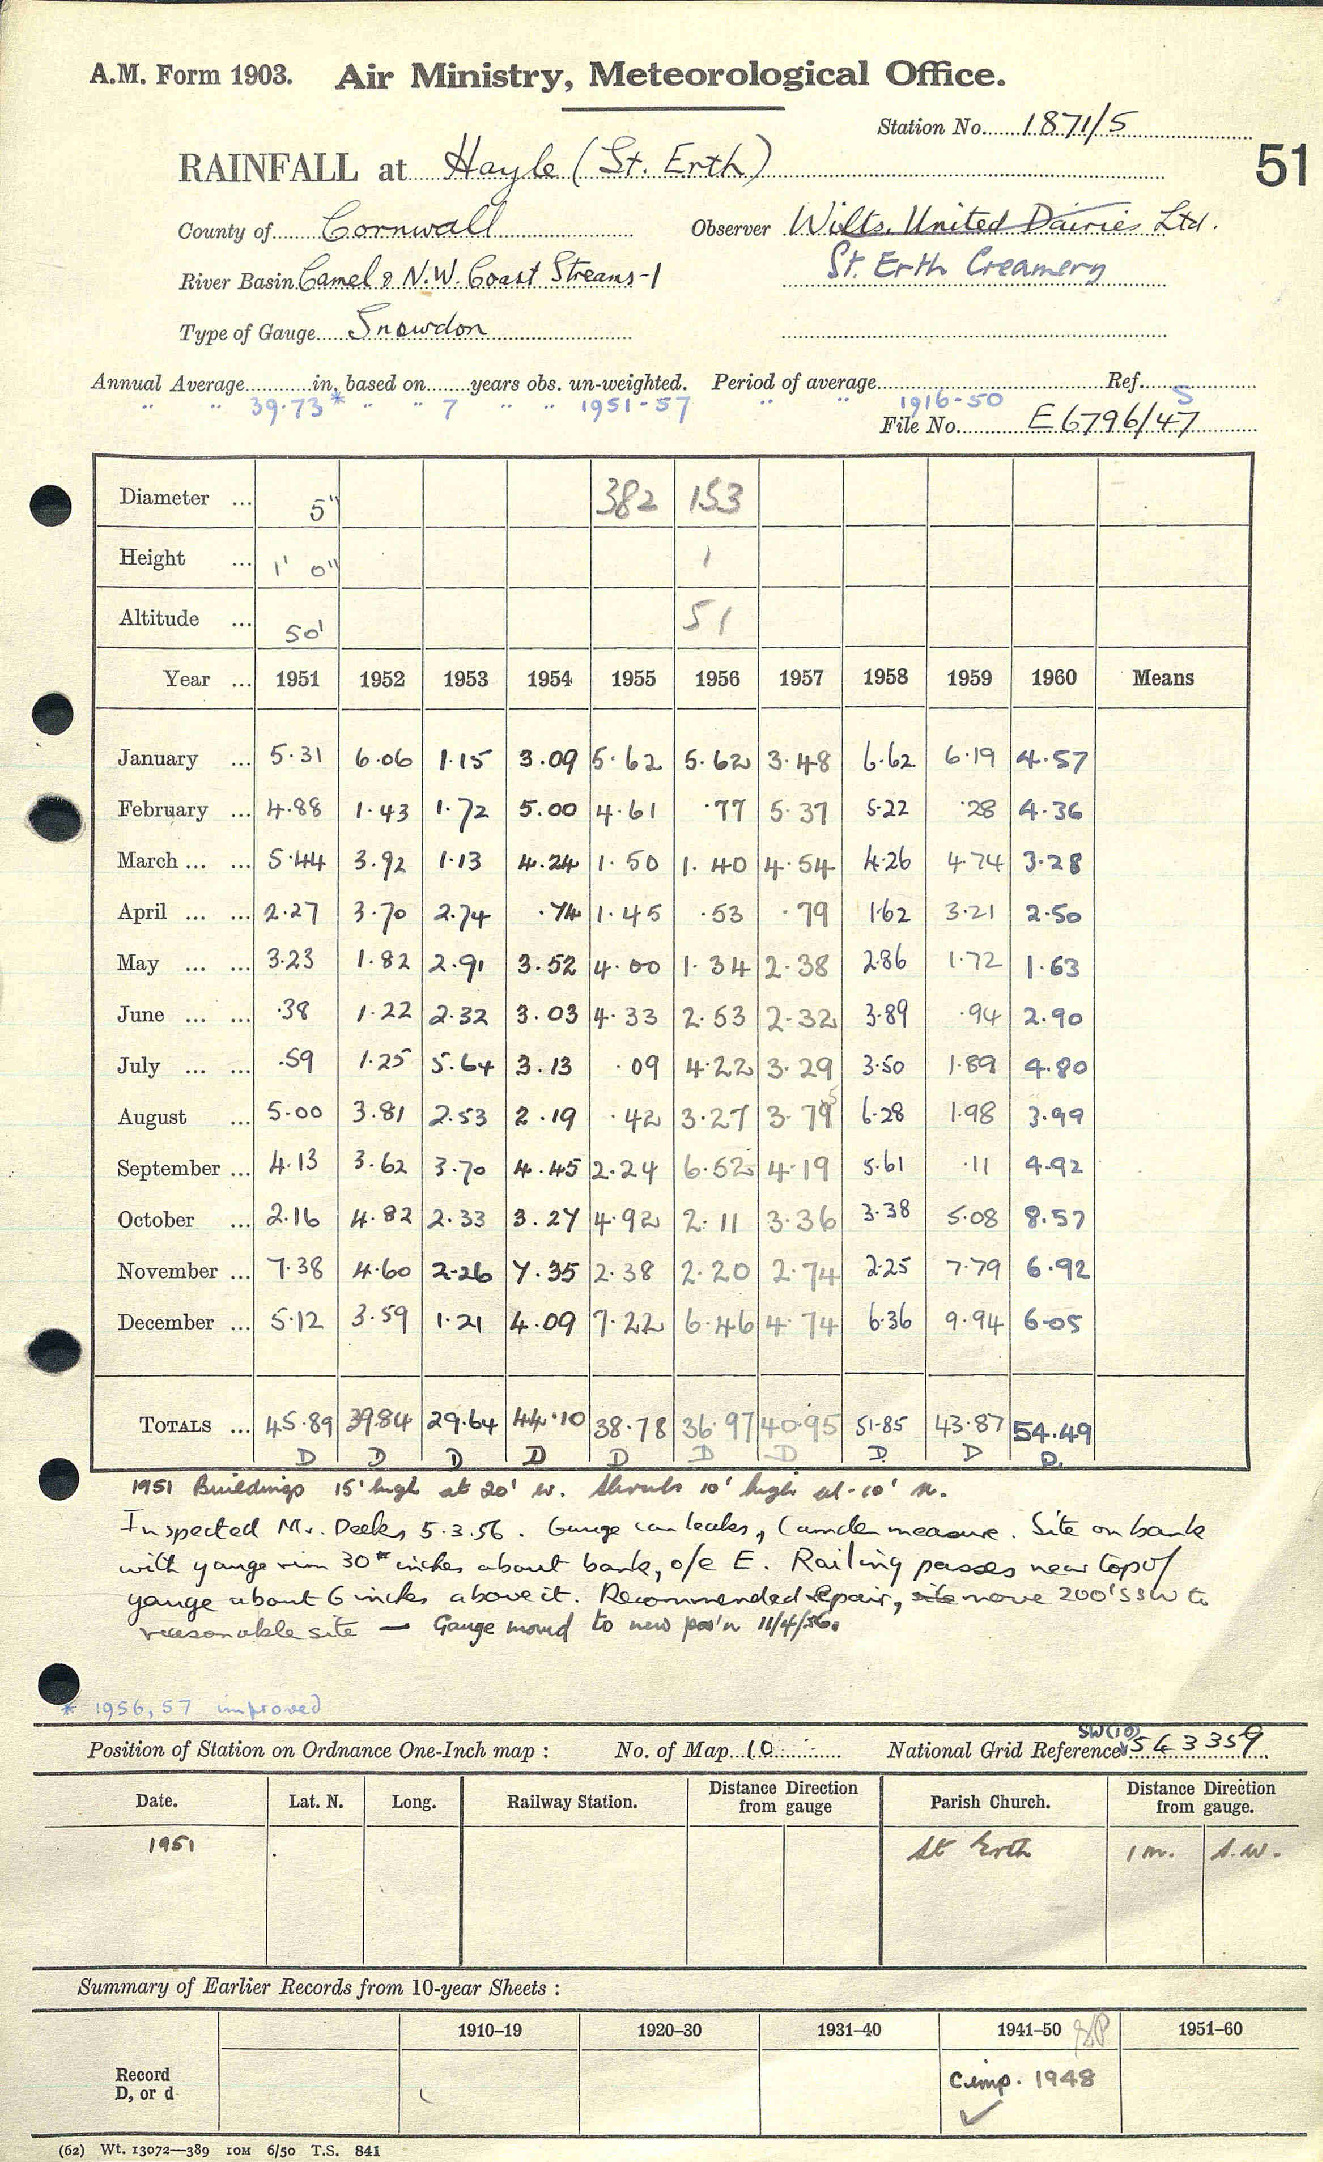 A.M. Form 1903. Air Ministry, Meteorological Office.
Station No. 1871/5
51
RAINFALL at Hayle (St. Erth)
County of Cornwall Observer Wilts. United Dairies Ltd.
River Basin Camel & N.W. Coast Streams-1 St. Erth Creamery
Type of Gauge Snowdon
Annual Average in. based on years obs. un-weighted. Period of average Ref.
" " 39.73* " " 7 " " 1951-57 " " 1916-50 S
File No. E6796/47
Diameter ... 5" 382 153
Height ... 1' 0" 1
Altitude ... 50' 51
Year ... 1951 1952 1953 1954 1955 1956 1957 1958 1959 1960 Means
January ... 5.31 6.06 1.15 3.09 5.62 5.62 3.48 6.62 6.19 4.57
February ... 4.88 1.43 1.72 5.00 4.61 .77 5.37 5.22 .28 4.36
March ... ... 5.44 3.92 1.13 4.24 1.50 1.40 4.54 4.26 4.74 3.28
April ... ... 2.27 3.70 2.74 .74 1.45 .53 .79 1.62 3.21 2.50
May ... ... 3.23 1.82 2.91 3.52 4.00 1.34 2.38 2.86 1.72 1.63
June ... ... .38 1.22 2.32 3.03 4.33 2.53 2.32 3.89 .94 2.90
July ... ... .59 1.25 5.64 3.13 .09 4.22 3.29 3.50 1.89 4.80
August ... 5.00 3.81 2.53 2.19 .42 3.27 3.79 5 6.28 1.98 3.99
September ... 4.13 3.62 3.70 4.45 2.24 6.52 4.19 5.61 .11 4.92
October ... 2.16 4.82 2.33 3.27 4.92 2.11 3.36 3.38 5.08 8.57
November ... 7.38 4.60 2.26 7.35 2.38 2.20 2.74 2.25 7.79 6.92
December ... 5.12 3.59 1.21 4.09 7.22 6.46 4.74 6.36 9.94 6.05
TOTALS ... 45.89 39.84 29.64 44.10 38.78 36.97 40.95 51.85 43.87 54.49
D D D D D D D D D D.
1951 Buildings 15' high at 20' W. Shrubs 10' high at 10' N.
Inspected Mr. Deeks 5.3.56. Gauge can leaks, Camden measure. Site on bank
with gauge rim 30 inches about bank, o/e E. Railing passes near top of
gauge about 6 inches above it. Recommended repair, site move 200' SSW to
reasonable site — Gauge moved to new pos'n 11/4/56.
* 1956, 57 improved
Position of Station on Ordnance One-Inch map : No. of Map 10 National Grid Reference SW(10) 543359
Date. Lat. N. Long. Railway Station. Distance Direction from gauge Parish Church. Distance Direction from gauge.
1951 St Erth 1 m. S.W.
Summary of Earlier Records from 10-year Sheets :
1910–19 1920–30 1931–40 1941–50 1951–60
Record
D, or d
Comp. 1948
(62) Wt. 13072—389 10M 6/50 T.S. 841